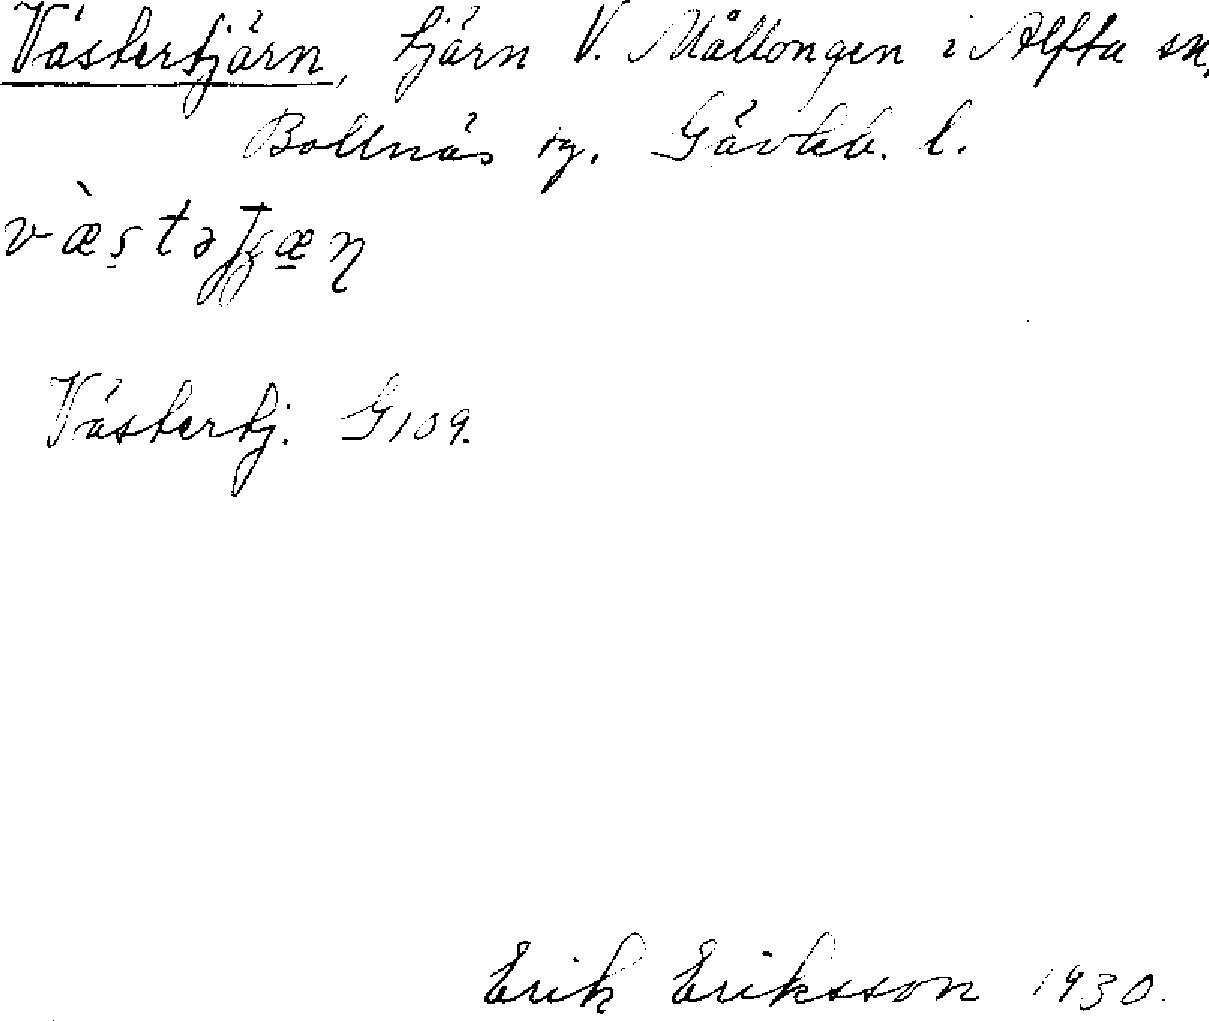 Västertjärn, tjärn V. Mållongen i Alfta sn.
Bollnäs tg. Gävleb. l.
Västertj. G109.
Erik Eriksson 1930.